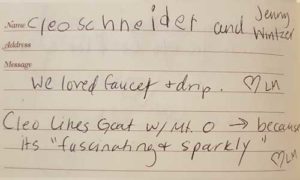 Name Cleo schneider and Jenny Wintzer
Address
Message
We loved faucet + drip. ♡ LN
Cleo likes Goat w/ Mt. O → because
its "fascinating + sparkly"
♡ LN